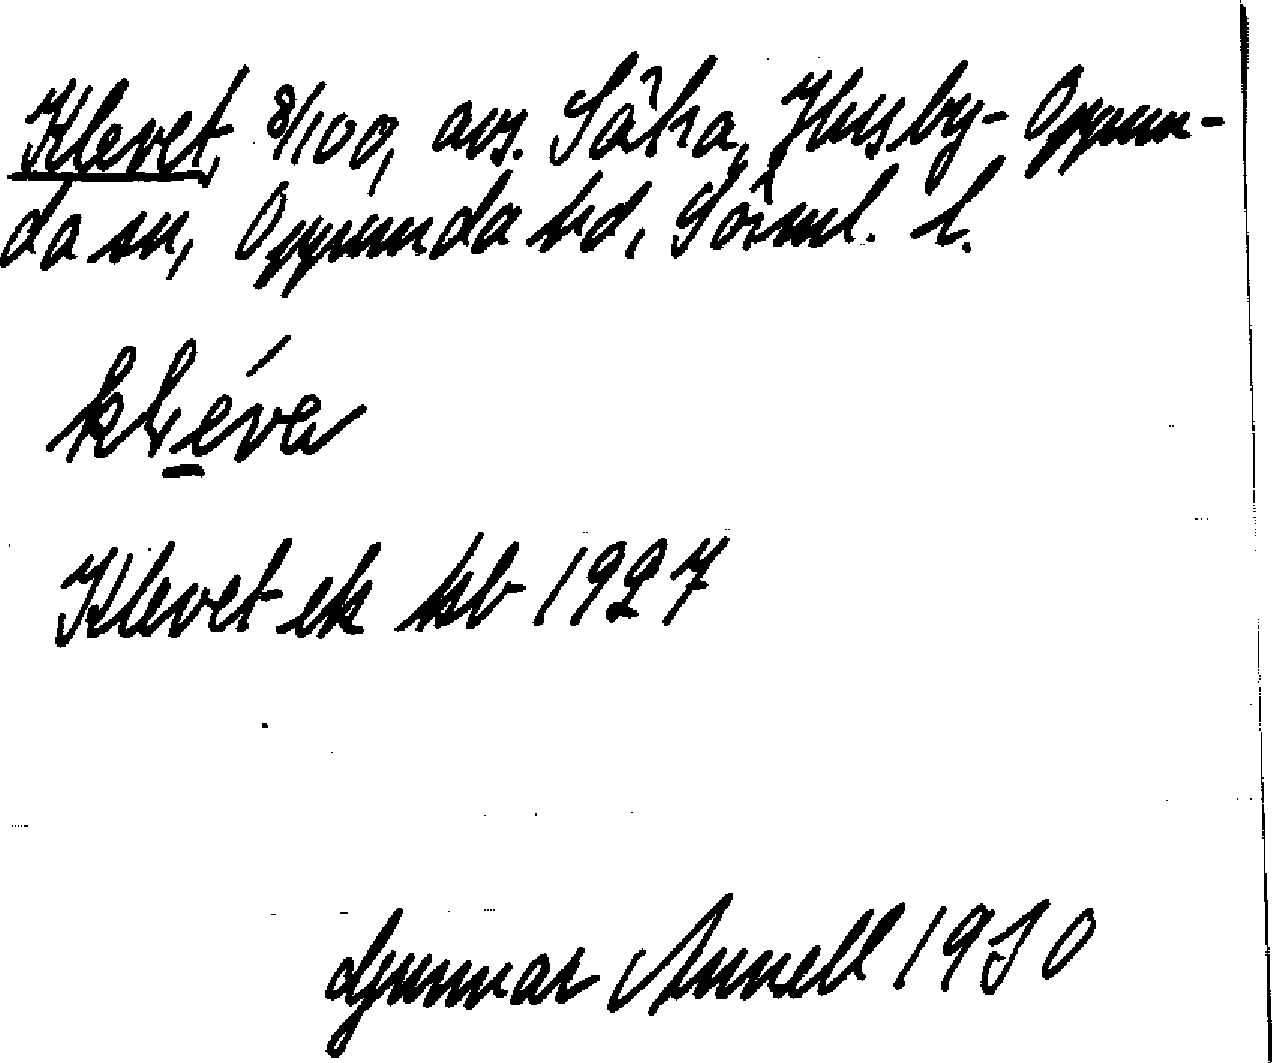 Klevet, 8/100, avs. Såka, Husby-Oppun-
da sn, Oppunda hd, Sörml. l.
klèva
Klevet ek kb 1927
Gunnar Annell 1930